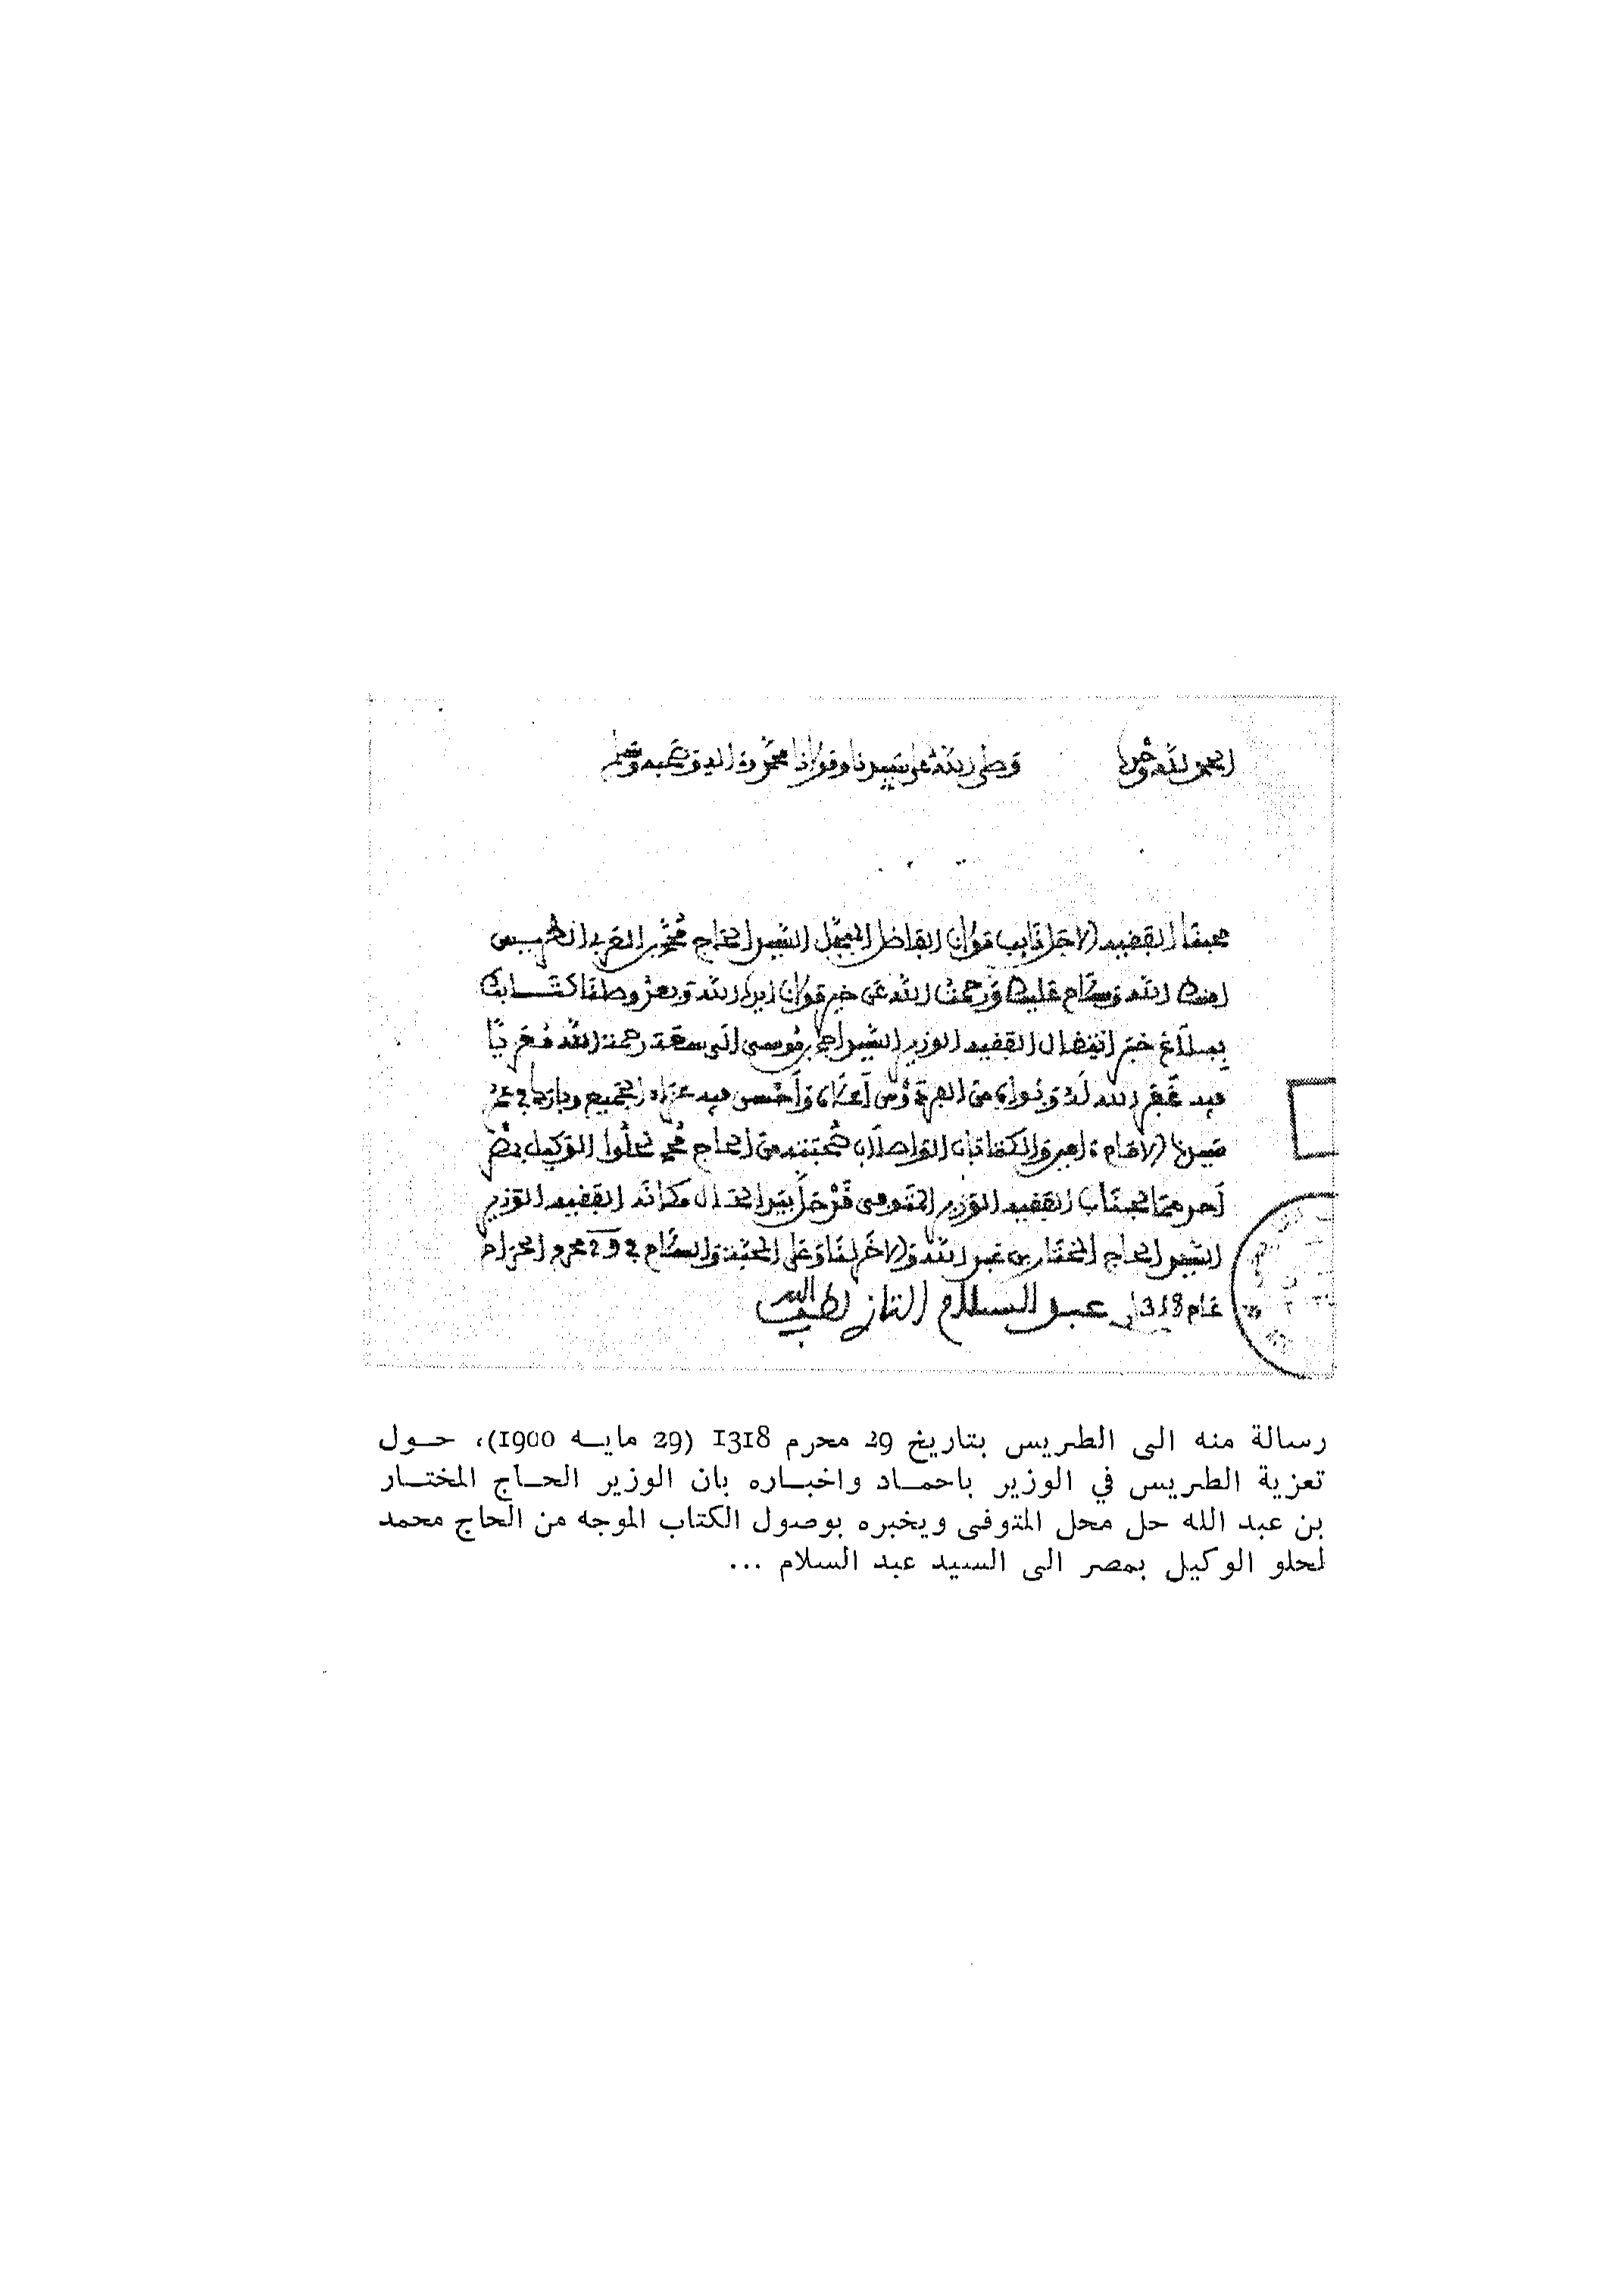 الحمد لله وحده وصلى الله على سيدنا ومولانا محمد وآله وصحبه وسلم
محبنا الفقيه الأجل نايب مولانا الفاضل المبجل السيد الحاج محمد بن العربي الطريس
أمنك الله وسلام عليك ورحمت الله عن خير مولانا أيده الله وبعد وصلنا كتابك
ببلاغ خبر انتقال الفقيه الوزير السيد احمد بن موسى الى سعة رحمة الله معزيا
فيه غفر الله له وبوأه من الفردوس أعلاه وأحسن فيه عزاء الجميع وبارك في عمر
سيدنا الإمام الواصلان صحبته من الحاج محمد لحلوا الوكيل بمصر
أحدهما لجناب الفقيه الوزير المتوفى قد حل مكانه الفقيه الوزير
السيد الحاج المختار بن عبد الله والآخر لنا وعلى المحبة والسلام في 29 محرم الحرام
عام 1318 عبد السلام التازي لطف الله به
رسالة منه الى الطريس بتاريخ 29 محرم 1318 (29 مايه 1900)، حول
تعزية الطريس في الوزير باحماد واخباره بان الوزير الحاج المختار
بن عبد الله حل محل المتوفى ويخبره بوصول الكتاب الموجه من الحاج محمد
لحلو الوكيل بمصر الى السيد عبد السلام ...